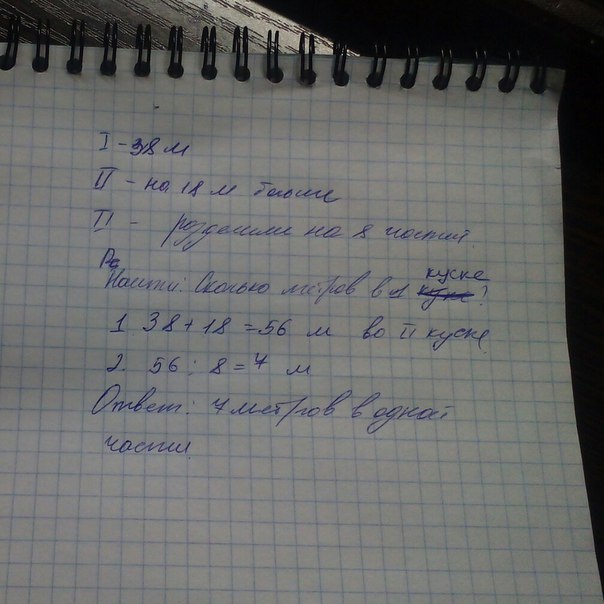 I - 38 м
II - на 18 м больше
II - разделили на 8 частей.
Ре
Найти: Сколько метров в 1 куске?
1. 38 + 18 = 56 м во II куске
2. 56 : 8 = 7 м
Ответ: 7 метров в одной
части.